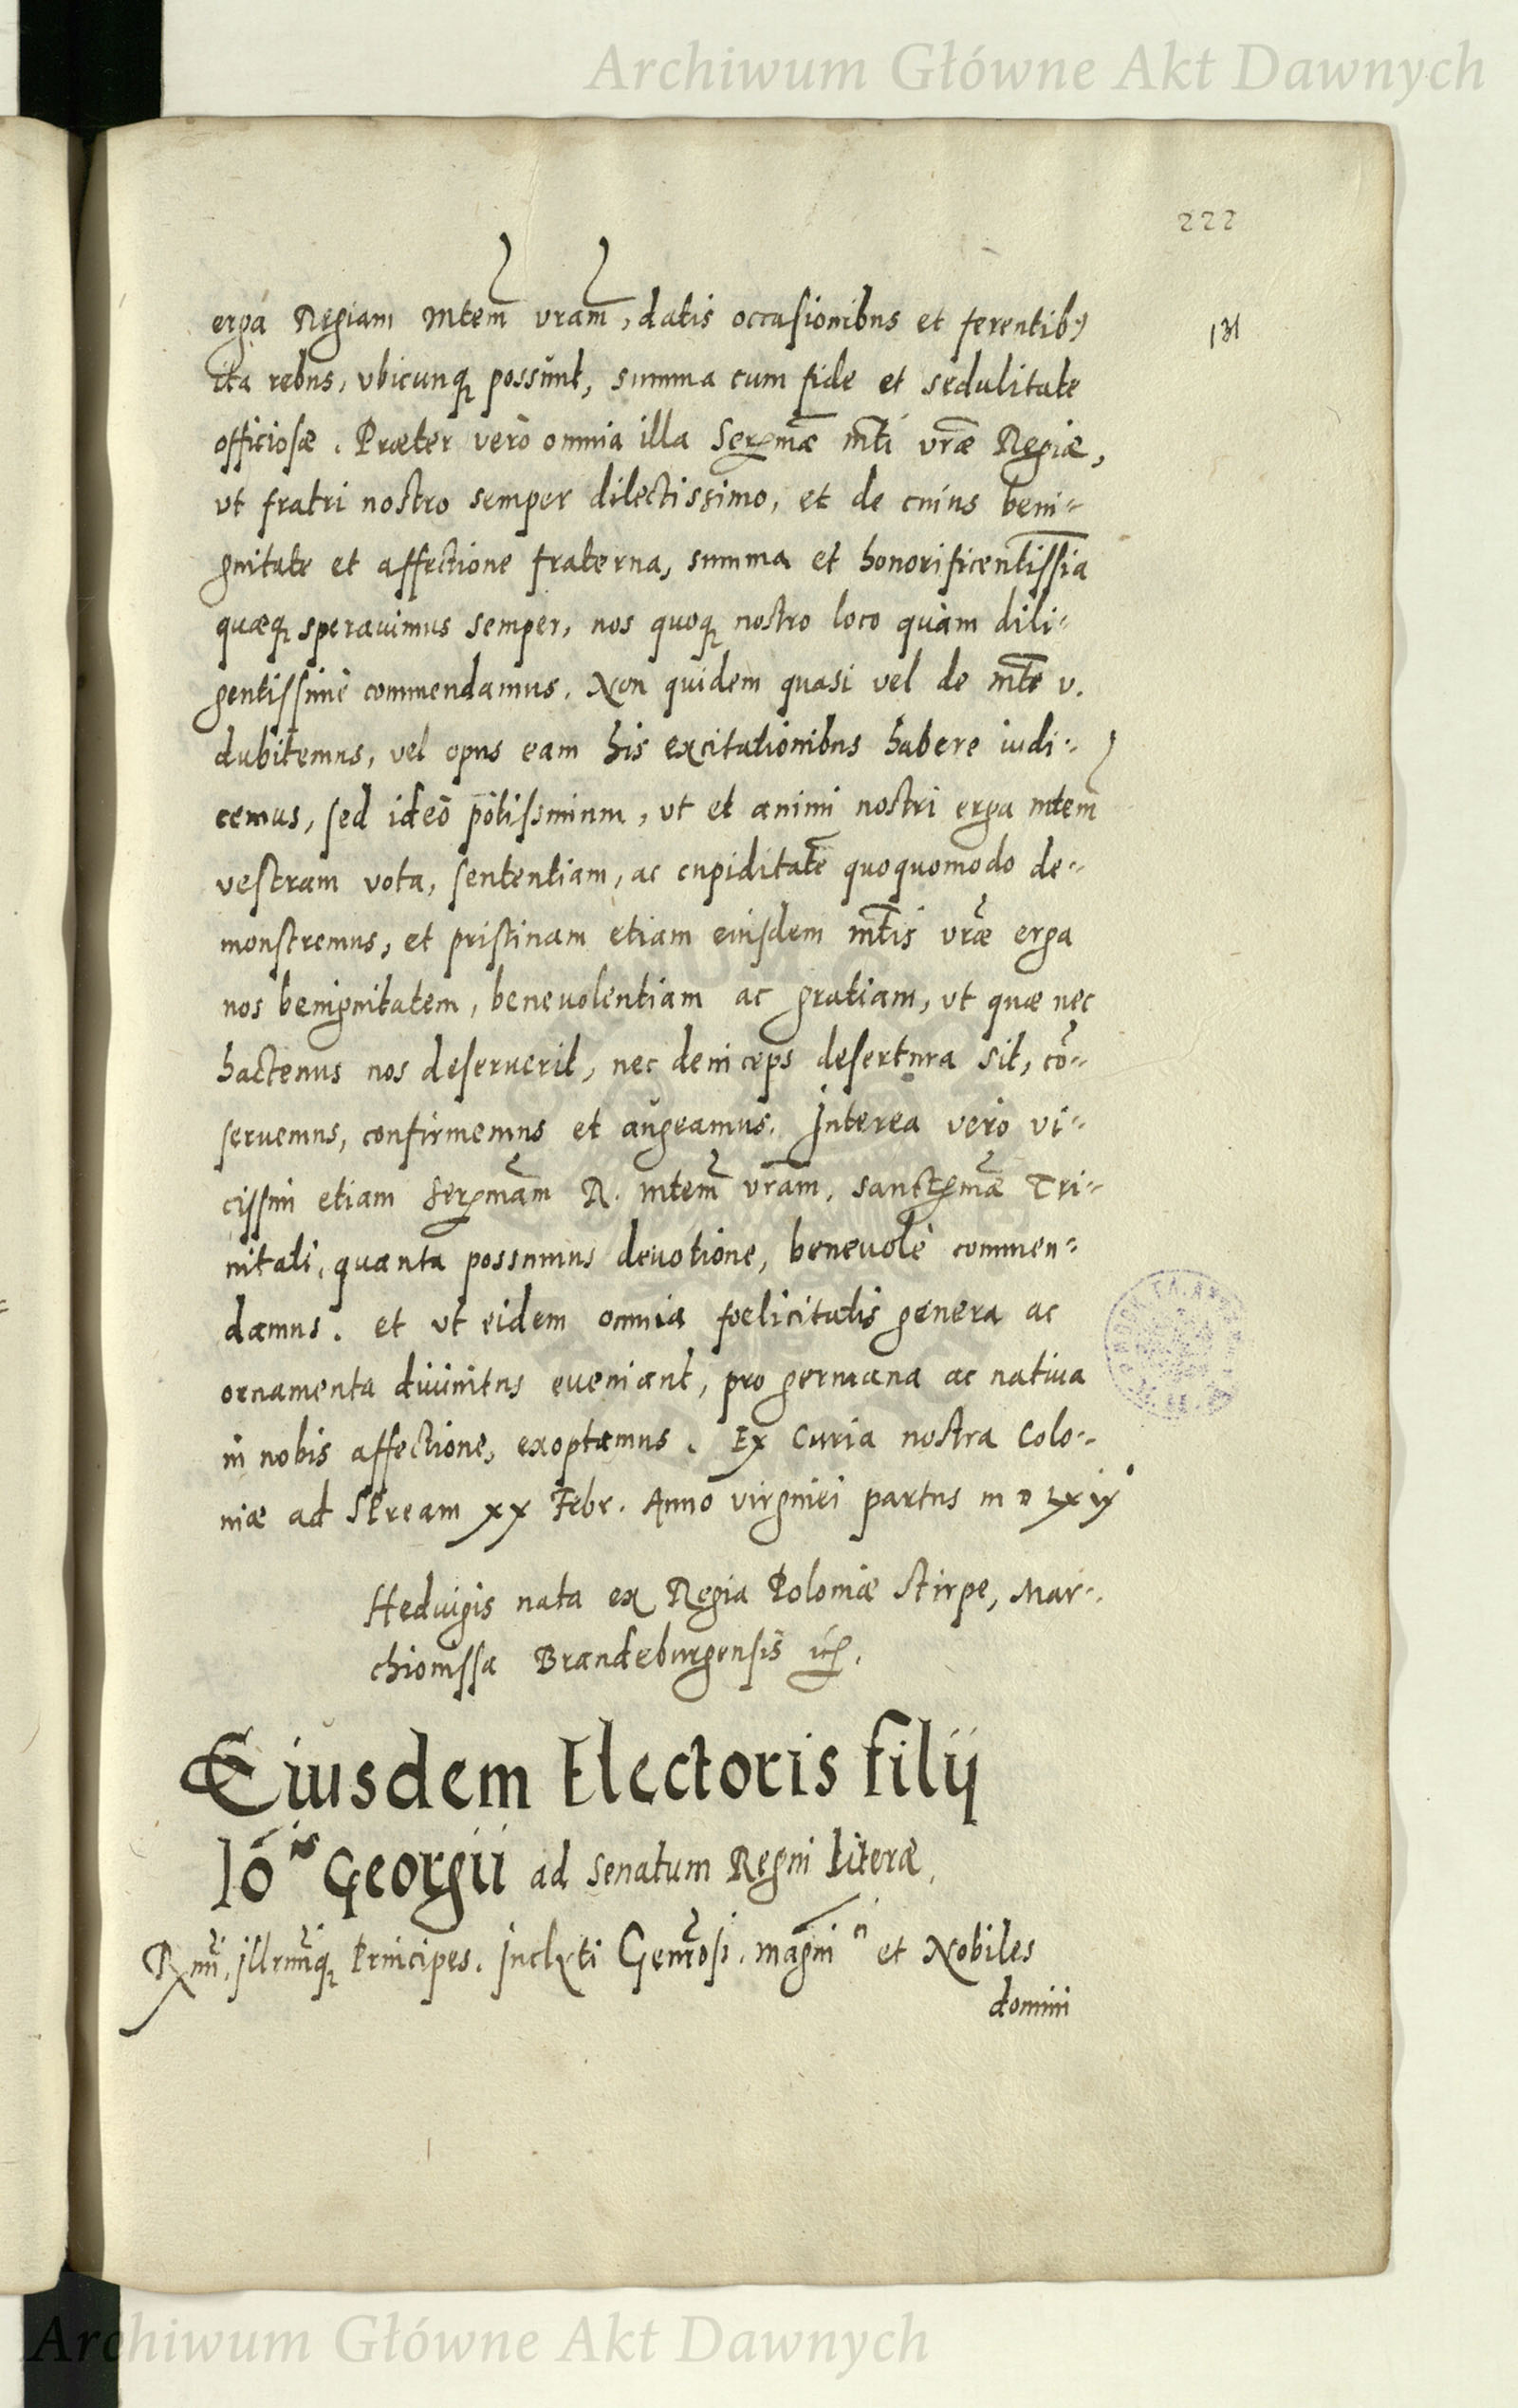 Archiwum Główne Akt Dawnych
222
131
erga Regiam Mtem vram, datis occasionibus et ferentib9
ita rebus, vbicunq possunt, summa cum fide et sedulitate
officiosæ. Præter verò omnia illa Sermæ mti vræ Regiæ,
vt fratri nostro semper dilectissimo, et de cuius beni=
gnitate et affectione fraterna, summa et honorificentissia
quæq sperauimus semper, nos quoq nostro loco quàm dili=
gentissimè commendamus. Non quidem quasi vel de mte v.
dubitemus, vel opus eam his excitationibus habere iudi=
cemus, sed ideò potissimum, vt et animi nostri erga mtem
vestram vota, sententiam, ac cupiditatē quoquomodo de=
monstremus, et pristinam etiam eiusdem mtis vræ erga
nos benignitatem, beneuolentiam ac gratiam, vt quæ nec
hactenus nos deseruerit, nec deinceps desertura sit, cō=
seruemus, confirmemus et augeamus. Interea verò vi=
cissim etiam Sermam R. mtem vram, sanctmæ Tri=
nitati, quanta possumus deuotione, beneuolè commen=
damus. et vt eidem omnia fœlicitatis genera ac
ornamenta diuinitus eueniant, pro germana ac natiua
in nobis affectione, exoptamus. Ex Curia nostra Colo=
niæ ad Spream xx Febr. Anno virginei partus m D LXIX
Heduigis nata ex Regia Poloniæ Stirpe, Mar=
chionissa Brandeburgensis
Eiusdem Electoris filij
Iōis Georgii ad Senatum Regni literæ.
Rmi, Illrmiq Principes. Inclyti Generosi. magni et Nobiles
domini
Archiwum Główne Akt Dawnych